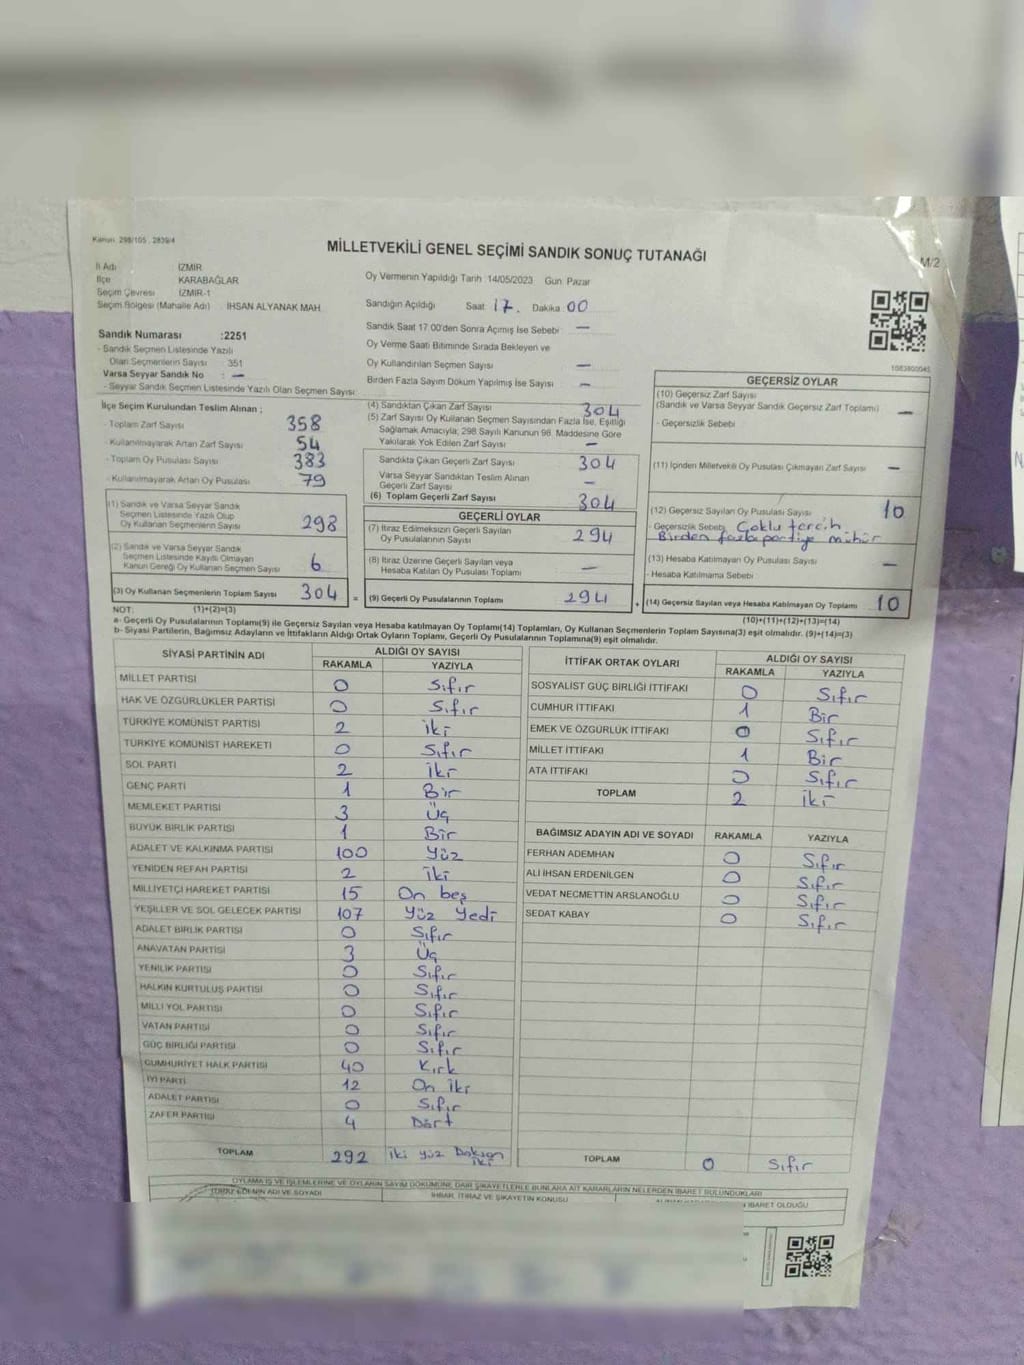 Kanun: 298/105, 2839/4
MİLLETVEKİLİ GENEL SEÇİMİ SANDIK SONUÇ TUTANAĞI
M/2
İl Adı İZMİR
İlçe KARABAĞLAR
Seçim Çevresi İZMİR-1
Seçim Bölgesi (Mahalle Adı) İHSAN ALYANAK MAH.
Sandık Numarası :2251
- Sandık Seçmen Listesinde Yazılı
Olan Seçmenlerin Sayısı 351
Varsa Seyyar Sandık No : —
- Seyyar Sandık Seçmen Listesinde Yazılı Olan Seçmen Sayısı:
Oy Vermenin Yapıldığı Tarih :14/05/2023 Gün: Pazar
Sandığın Açıldığı Saat 17. Dakika 00
Sandık Saat 17:00'den Sonra Açılmış İse Sebebi —
Oy Verme Saati Bitiminde Sırada Bekleyen ve
Oy Kullandırılan Seçmen Sayısı —
Birden Fazla Sayım Döküm Yapılmış İse Sayısı —
1083800045
İlçe Seçim Kurulundan Teslim Alınan ;
- Toplam Zarf Sayısı 358
- Kullanılmayarak Artan Zarf Sayısı 54
- Toplam Oy Pusulası Sayısı 383
- Kullanılmayarak Artan Oy Pusulası 79
(1) Sandık ve Varsa Seyyar Sandık
Seçmen Listesinde Yazılı Olup
Oy Kullanan Seçmenlerin Sayısı 298
(2) Sandık ve Varsa Seyyar Sandık
Seçmen Listesinde Kayıtlı Olmayan
Kanun Gereği Oy Kullanan Seçmen Sayısı 6
(3) Oy Kullanan Seçmenlerin Toplam Sayısı 304 =
(4) Sandıktan Çıkan Zarf Sayısı 304
(5) Zarf Sayısı Oy Kullanan Seçmen Sayısından Fazla İse, Eşitliği
Sağlamak Amacıyla; 298 Sayılı Kanunun 98. Maddesine Göre
Yakılarak Yok Edilen Zarf Sayısı —
Sandıkta Çıkan Geçerli Zarf Sayısı 304
Varsa Seyyar Sandıktan Teslim Alınan
Geçerli Zarf Sayısı —
(6) Toplam Geçerli Zarf Sayısı 304
GEÇERLİ OYLAR
(7) İtiraz Edilmeksizin Geçerli Sayılan
Oy Pusulalarının Sayısı 294
(8) İtiraz Üzerine Geçerli Sayılan veya
Hesaba Katılan Oy Pusulası Toplamı —
(9) Geçerli Oy Pusulalarının Toplamı 294 +
GEÇERSİZ OYLAR
(10) Geçersiz Zarf Sayısı
(Sandık ve Varsa Seyyar Sandık Geçersiz Zarf Toplamı) —
- Geçersizlik Sebebi
(11) İçinden Milletvekili Oy Pusulası Çıkmayan Zarf Sayısı —
(12) Geçersiz Sayılan Oy Pusulası Sayısı 10
- Geçersizlik Sebebi Çoklu tercih
Birden fazla partiye mühür
(13) Hesaba Katılmayan Oy Pusulası Sayısı —
- Hesaba Katılmama Sebebi
(14) Geçersiz Sayılan veya Hesaba Katılmayan Oy Toplamı 10
NOT: (1)+(2)=(3) (10)+(11)+(12)+(13)=(14)
a- Geçerli Oy Pusulalarının Toplamı(9) ile Geçersiz Sayılan veya Hesaba katılmayan Oy Toplamı(14) Toplamları, Oy Kullanan Seçmenlerin Toplam Sayısına(3) eşit olmalıdır. (9)+(14)=(3)
b- Siyasi Partilerin, Bağımsız Adayların ve İttifakların Aldığı Ortak Oyların Toplamı, Geçerli Oy Pusulalarının Toplamına(9) eşit olmalıdır.
SİYASİ PARTİNİN ADI ALDIĞI OY SAYISI
RAKAMLA YAZIYLA
MİLLET PARTİSİ 0 Sıfır
HAK VE ÖZGÜRLÜKLER PARTİSİ 0 Sıfır
TÜRKİYE KOMÜNİST PARTİSİ 2 İki
TÜRKİYE KOMÜNİST HAREKETİ 0 Sıfır
SOL PARTİ 2 İki
GENÇ PARTİ 1 Bir
MEMLEKET PARTİSİ 3 Üç
BÜYÜK BİRLİK PARTİSİ 1 Bir
ADALET VE KALKINMA PARTİSİ 100 Yüz
YENİDEN REFAH PARTİSİ 2 İki
MİLLİYETÇİ HAREKET PARTİSİ 15 On beş
YEŞİLLER VE SOL GELECEK PARTİSİ 107 Yüz Yedi
ADALET BİRLİK PARTİSİ 0 Sıfır
ANAVATAN PARTİSİ 3 Üç
YENİLİK PARTİSİ 0 Sıfır
HALKIN KURTULUŞ PARTİSİ 0 Sıfır
MİLLİ YOL PARTİSİ 0 Sıfır
VATAN PARTİSİ 0 Sıfır
GÜÇ BİRLİĞİ PARTİSİ 0 Sıfır
CUMHURİYET HALK PARTİSİ 40 Kırk
İYİ PARTİ 12 On İki
ADALET PARTİSİ 0 Sıfır
ZAFER PARTİSİ 4 Dört
TOPLAM 292 İki yüz Doksan iki
İTTİFAK ORTAK OYLARI ALDIĞI OY SAYISI
RAKAMLA YAZIYLA
SOSYALİST GÜÇ BİRLİĞİ İTTİFAKI 0 Sıfır
CUMHUR İTTİFAKI 1 Bir
EMEK VE ÖZGÜRLÜK İTTİFAKI 0 Sıfır
MİLLET İTTİFAKI 1 Bir
ATA İTTİFAKI 0 Sıfır
TOPLAM 2 İki
BAĞIMSIZ ADAYIN ADI VE SOYADI RAKAMLA YAZIYLA
FERHAN ADEMHAN 0 Sıfır
ALİ İHSAN ERDENİLGEN 0 Sıfır
VEDAT NECMETTİN ARSLANOĞLU 0 Sıfır
SEDAT KABAY 0 Sıfır
TOPLAM 0 Sıfır
OYLAMA İŞ VE İŞLEMLERİNE VE OYLARIN SAYIM DÖKÜMÜNE DAİR ŞİKAYETLERLE BUNLARA AİT KARARLARIN NELERDEN İBARET BULUNDUKLARI
İTİRAZ EDENİN ADI VE SOYADI İHBAR, İTİRAZ VE ŞİKAYETİN KONUSU İBARET OLDUĞU